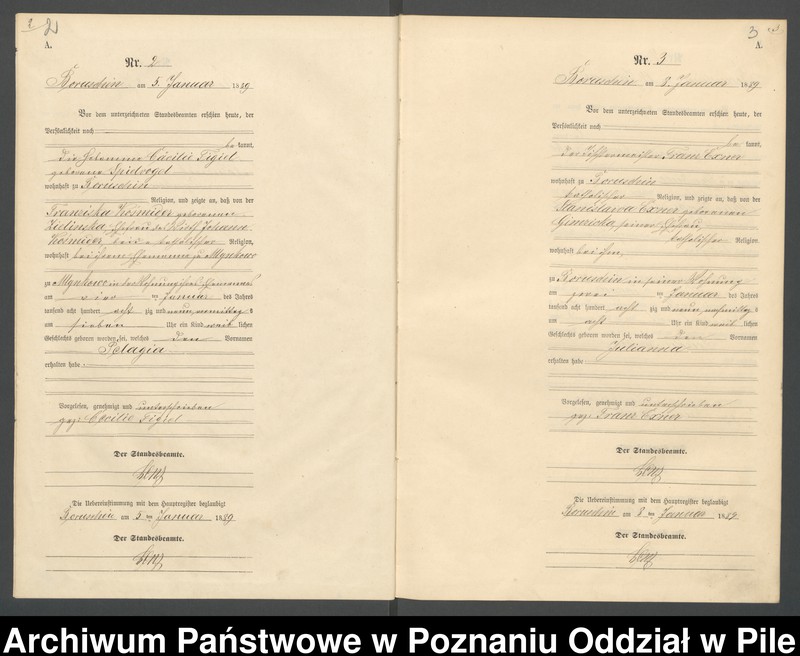 2 2
A.
Nr. 2
Boruschin am 5. Januar 1889
Vor dem unterzeichneten Standesbeamten erschien heute, der
Persönlichkeit nach
be kannt,
die Hebamme Cäcilie Figiel
geborene Spidvogel
wohnhaft zu Boruschin
Religion, und zeigte an, daß von der
Franziska Kosmider geborenen
Zielinska, Ehefrau des Johann
Kosmider, beide katholischer Religion,
wohnhaft bei ihrem Ehemanne zu Mynkowo
zu Mynkowo in der Wohnung ihres Ehemannes
am vier ten Januar des Jahres
tausend acht hundert acht zig und neun, vormittags
um sieben Uhr ein Kind weib lichen
Geschlechts geboren worden sei, welches den Vornamen
Pelagia
erhalten habe
Vorgelesen, genehmigt und unterschrieben
gez. Cäcilie Figiel
Der Standesbeamte.
Die Uebereinstimmung mit dem Hauptregister beglaubigt
Boruschin am 5 ten Januar 1889
Der Standesbeamte.
3
A.
Nr. 3
Boruschin am 8. Januar 1889
Vor dem unterzeichneten Standesbeamten erschien heute, der
Persönlichkeit nach
be kannt,
der Franz Exner
wohnhaft zu Boruschin
katholischer Religion, und zeigte an, daß von der
Stanislawa Exner geborenen
seiner Ehefrau,
katholischer Religion
wohnhaft bei ihm,
zu Boruschin in seiner Wohnung
am zwei ten Januar des Jahres
tausend acht hundert acht zig und neun, nachmittags
um acht Uhr ein Kind weib lichen
Geschlechts geboren worden sei, welches den Vornamen
Julianna
erhalten habe
Vorgelesen, genehmigt und unterschrieben
gez. Franz Exner
Der Standesbeamte.
Die Uebereinstimmung mit dem Hauptregister beglaubigt
Boruschin am 8 ten Januar 1889
Der Standesbeamte.
Archiwum Państwowe w Poznaniu Oddział w Pile